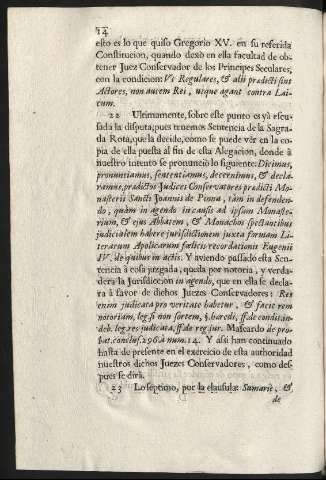 14
esto es lo que quiso Gregorio XV. en su referida
Constitucion, quando dexò en ella facultad de ob-
tener Juez Conservador de los Principes Seculares,
con la condicion: Vt Regulares, & alij prædicti sint
Actores, non autem Rei, neque agant contra Lai-
cum.
22 Ultimamente, sobre este punto es yà escu-
sada la disputa, pues tenemos Sentencia de la Sagra-
da Rota, que la decide, como se puede vèr en la co-
pia de ella puesta al fin de esta Alegacion, donde à
nuestro intento se pronunciò lo siguiente: Dicimus,
pronuntiamus, sententiamus, decernimus, & decla-
ramus, prædictos Judices Conservatores prædicti Mo-
nasterii Sancti Joannis de Pinna, tàm in defenden-
do, quàm in agendo in causis ad ipsum Monaste-
rium, & ejus Abbatem, & Monachos spectantibus
judicialem habere jurisdictionem juxta formam Li-
terarum Apolicarum fœlicis recordationis Eugenii
IV. de quibus in actis. Y aviendo passado esta Sen-
tencia à cosa juzgada, queda por notoria, y verda-
dera la Jurisdiccion in agendo, que en ella se decla-
ra à favor de dichos Juezes Conservadores: Res
enim judicata pro veritate habetur, & facit rem
notoriam, leg. si non sortem, §. hæredi, ff. de condit. in-
deb. leg. res judicata, ff. de reg. jur. Mascardo de pro-
bat. conclus. 296. à num. 14. Y assi han continuado
hasta de presente en el exercicio de esta authoridad
nuestros dichos Juezes Conservadores, como des-
pues se dirà.
23 Lo septimo, por la clausula: Sumariè, &
de